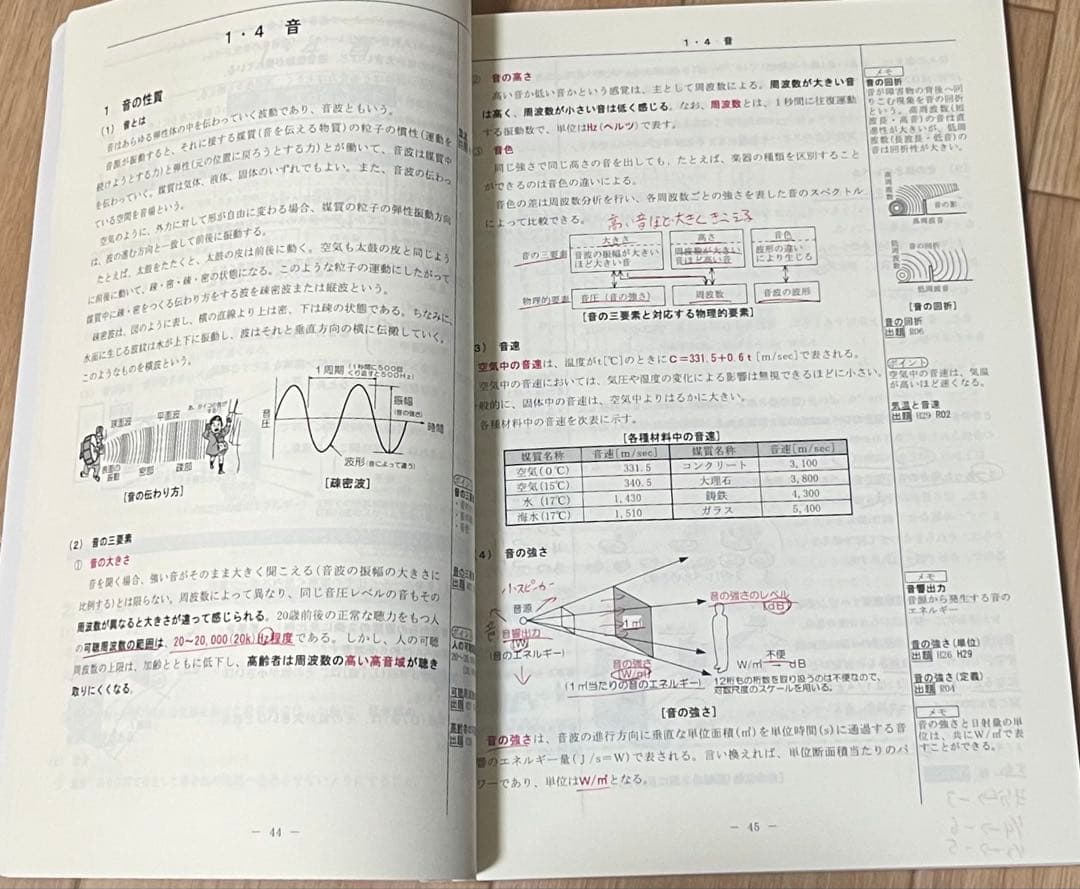 1・4 音
1 音の性質
(1) 音とは
音はあらゆる弾性体の中を伝わっていく波動であり、音波ともいう。
音源が振動すると、それに接する媒質(音を伝える物質)の粒子の慣性(運動を
続けようとする力)と弾性(元の位置に戻ろうとする力)とが働いて、音波は媒質中
を伝わっていく。媒質は気体、液体、固体のいずれでもよい。また、音波の伝わっ
ている空間を音場という。
空気のように、外力に対して形が自由に変わる場合、媒質の粒子の弾性振動方向
は、波の進む方向と一致して前後に振動する。
たとえば、太鼓をたたくと、太鼓の皮は前後に動く。空気も太鼓の皮と同じよう
に前後に動いて、疎・密・疎・密の状態になる。このような粒子の運動にしたがって
媒質中に疎・密をつくる伝わり方をする波を疎密波または縦波という。
疎密波は、図のように表し、横の直線より上は密、下は疎の状態である。ちなみに、
水面に生じる波紋は水が上下に振動し、波はそれと垂直方向の横に伝搬していく。
このようなものを横波という。
球面波
平面波
表面の
振動
密部
疎部
[音の伝わり方]
1周期
(1秒間に500回
くり返すと500Hz)
音圧
振幅
(音の強さ)
時間
波形(音によって違う)
[疎密波]
(2) 音の三要素
① 音の大きさ
音を聞く場合、強い音がそのまま大きく聞こえる(音波の振幅の大きさに
比例する)とは限らない。周波数によって異なり、同じ音圧レベルの音もその
周波数が異なると大きさが違って感じられる。20歳前後の正常な聴力をもつ人
の可聴周波数の範囲は、20〜20,000(20k)Hz程度である。しかし、人の可聴
周波数の上限は、加齢とともに低下し、高齢者は周波数の高い高音域が聴き
取りにくくなる。
― 44 ―
1・4 音
② 音の高さ
高い音か低い音かという感覚は、主として周波数による。周波数が大きい音
は高く、周波数が小さい音は低く感じる。なお、周波数とは、1秒間に往復運動
する振動数で、単位はHz(ヘルツ)で表す。
③ 音色
同じ強さで同じ高さの音を出しても、たとえば、楽器の種類を区別すること
ができるのは音色の違いによる。
音色の差は周波数分析を行い、各周波数ごとの強さを表した音のスペクトル
によって比較できる。
高い音ほど大きくきこえる
音の三要素
大きさ
音波の振幅が大きい
ほど大きい音
高さ
周波数が大きい
音ほど高い音
音色
波形の違い
により生じる
物理的要素
音圧(音の強さ)
周波数
音波の波形
[音の三要素と対応する物理的要素]
3) 音速
空気中の音速は、温度がt[℃]のときにC=331.5+0.6t[m/sec]で表される。
空気中の音速においては、気圧や湿度の変化による影響は無視できるほどに小さい。
般的に、固体中の音速は、空気中よりはるかに大きい。
各種材料中の音速を次表に示す。
[各種材料中の音速]
媒質名称 音速[m/sec] 媒質名称 音速[m/sec]
空気(0℃) 331.5 コンクリート 3,100
空気(15℃) 340.5 大理石 3,800
水(17℃) 1,430 鋳鉄 4,300
海水(17℃) 1,510 ガラス 5,400
4) 音の強さ
小スピーカー
音源
音
音響出力
[W]
(音のエネルギー)
1㎡
音の強さ
[W/㎡]
(1㎡当たりの音のエネルギー)
音の強さのレベル
[dB]
不便
W/㎡ dB
12桁もの桁数を取り扱うのは不便なので、
対数尺度のスケールを用いる。
[音の強さ]
音の強さは、音波の進行方向に垂直な単位面積(㎡)を単位時間(s)に通過する音
響のエネルギー量(J/s=W)で表される。言い換えれば、単位断面積当たりのパ
ワーであり、単位はW/㎡となる。
― 45 ―
メモ
音の回折
音が障害物の背後へ回
りこむ現象を音の回折
という。高周波数(短
波長・高音)の音は直
進性が大きいが、低周
波数(長波長・低音)の
音は回折性が大きい。
高周波数
音の影
高周波音
低周波数
音の回折
低周波音
[音の回折]
音の回折
出題 R06
ポイント
空気中の音速は、気温
が高いほど速くなる。
気温と音速
出題 H29 R02
メモ
音響出力
音源から発生する音の
エネルギー
音の強さ(単位)
出題 H26 H29
音の強さ(定義)
出題 R04
メモ
音の強さと日射量の単
位は、共にW/㎡で表
すことができる。